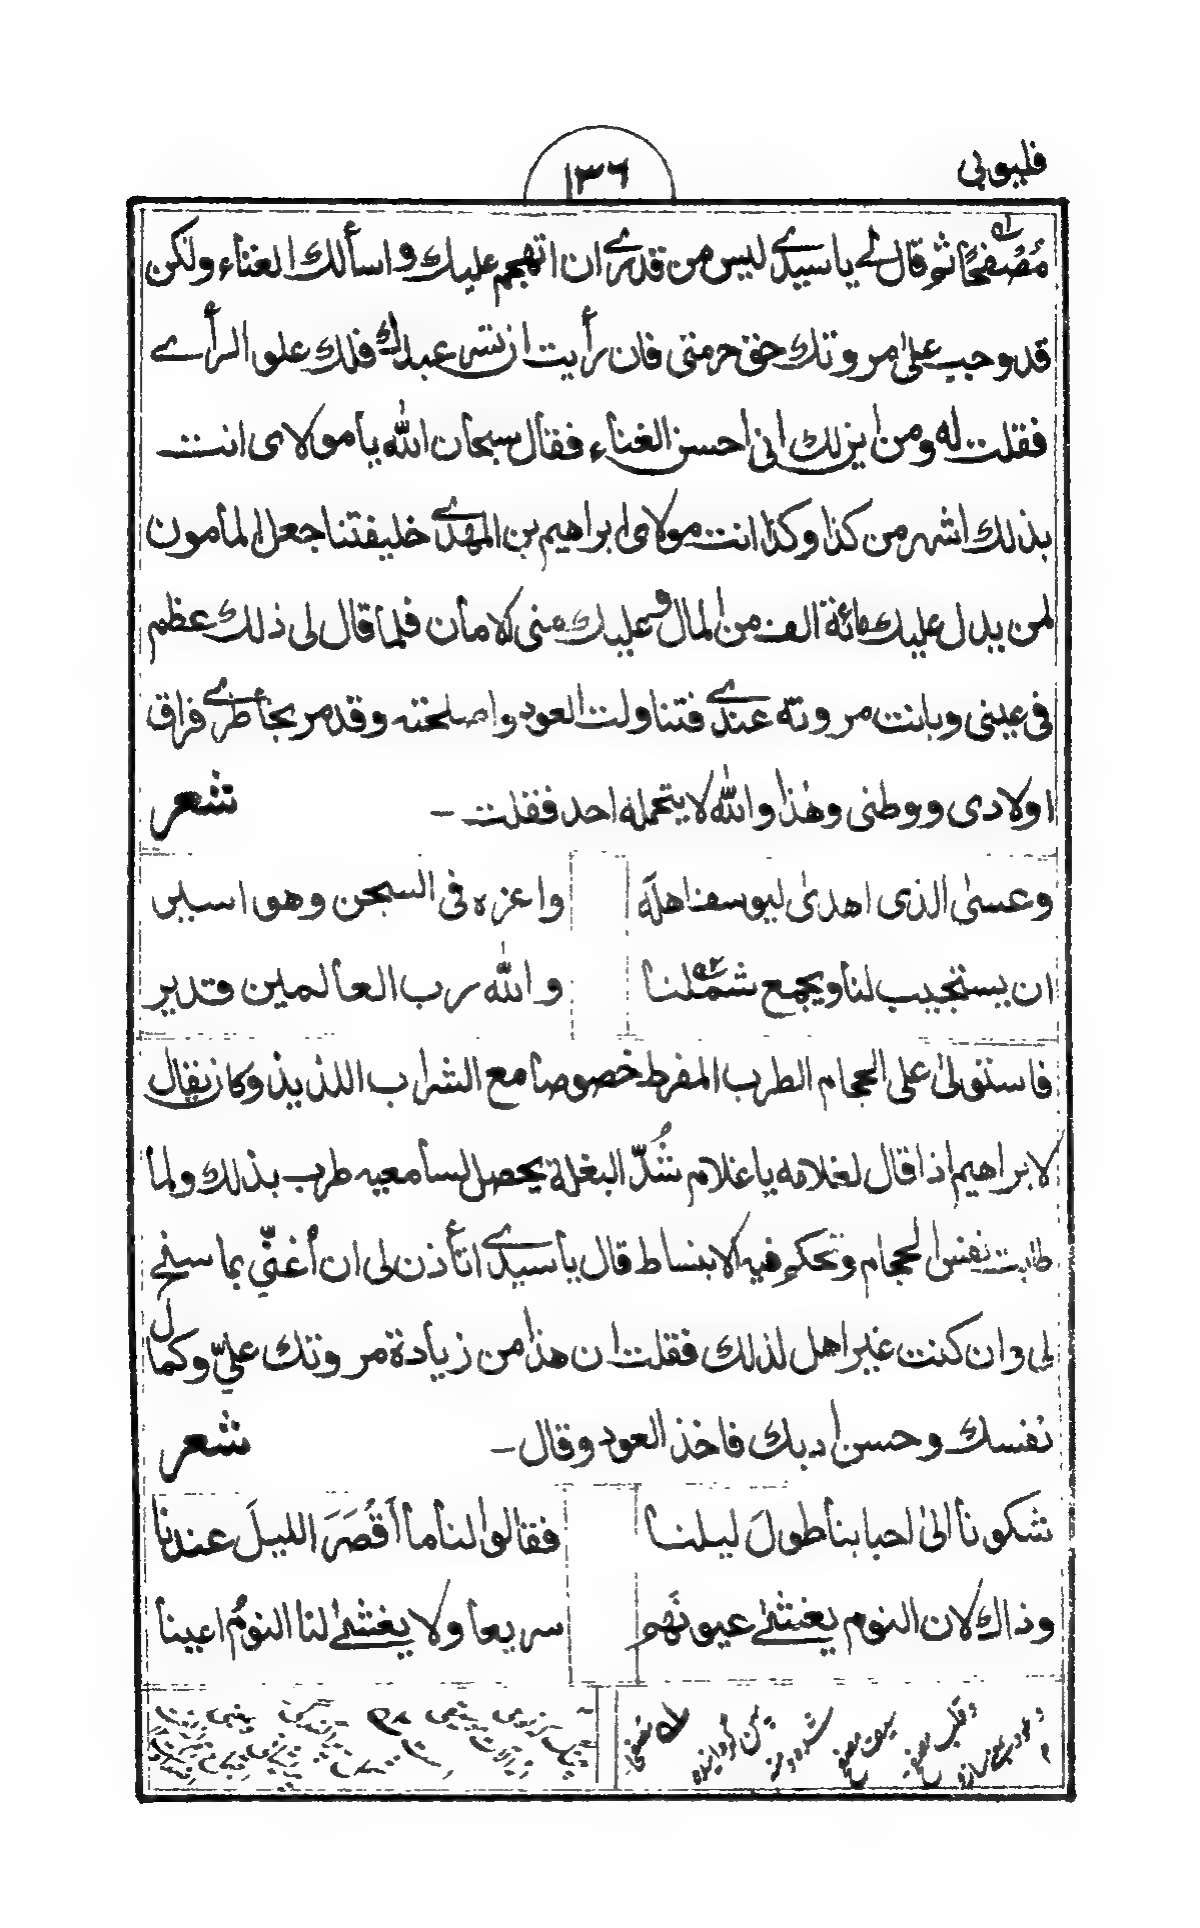 قليوبي
١٣٦
مُصْفحًا ثم قال لي يا سيدي ليس من قدري ان اتهجم عليك واسألك الغناء ولكن
قد وجب على مروتك حق حرمتي فان رأيت ان تشرف عبدك فلك علو الرأي
فقلت له ومن اين لك اني احسن الغناء فقال سبحان الله يا مولاي انت
بذلك اشهر من كذا وكذا انت مولاي ابراهيم بن المهدي خليفتنا جعل المامون
لمن يدل عليك مائة الف من المال وعليك منى الامان فلما قال لى ذلك عظم
فى عينى وبانت مروته عندي فتناولت العود واصلحته وقد مر بخاطري فراق
اولادى ووطنى وهذا والله لا يتحمله احد فقلت - شعر
وعسى الذى اهدى ليوسف اهله واعزه فى السجن وهو اسير
ان يستجيب لنا ويجمع شملنا والله رب العالمين قدير
فاستولى على الحجام الطرب المفرط خصوصا مع الشراب اللذيذ وكان يقال
لابراهيم اذا قال لغلامه يا غلام شُدّ البغلة يحصل لسامعيه طرب بذلك ولما
طابت نفس الحجام وتحكم فيه الانبساط قال يا سيدي اتأذن لى ان أغنّي بما سنح
لى وان كنت غير اهل لذلك فقلت ان هذا من زيادة مروتك عليّ وكمال
نفسك وحسن ادبك فاخذ العود وقال - شعر
شكونا الى احبابنا طولَ ليلنا فقالوا لنا ما أقْصَرَ الليلَ عندنا
وذاك لان النوم يغشى عيونهم سريعا ولا يغشى لنا النومُ اعينا